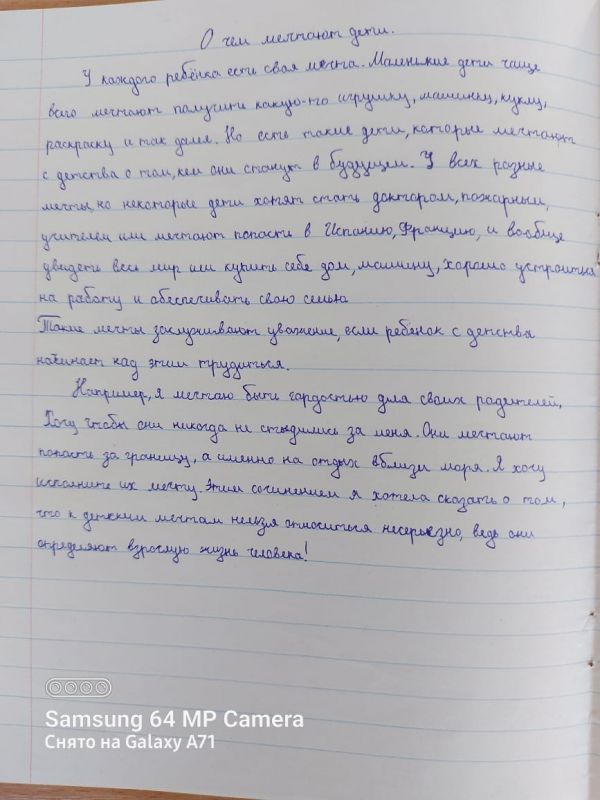 О чем мечтают дети.
У каждого ребёнка есть своя мечта. Маленькие дети чаще
всего мечтают получить какую-то игрушку, машинку, куклу,
раскраску и так далее. Но есть такие дети, которые мечтают
с детства о том, кем они станут в будущем. У всех разные
мечты, но некоторые дети хотят стать доктором, пожарным,
учителем или мечтают попасть в Испанию, Францию, и вообще
увидеть весь мир или купить себе дом, машину, хорошо устроиться
на работу и обеспечивать свою семью
Такие мечты заслуживают уважение, если ребёнок с детства
начинает над этим трудиться.
Например, я мечтаю быть гордостью для своих родителей,
Хочу чтобы они никогда не стыдились за меня. Они мечтают
попасть за границу, а именно на отдых вблизи моря. Я хочу
исполнить их мечту. Этим сочинением я хотела сказать о том,
что к детским мечтам нельзя относиться несерьезно, ведь они
определяют взрослую жизнь человека!
Samsung 64 MP Camera
Снято на Galaxy A71